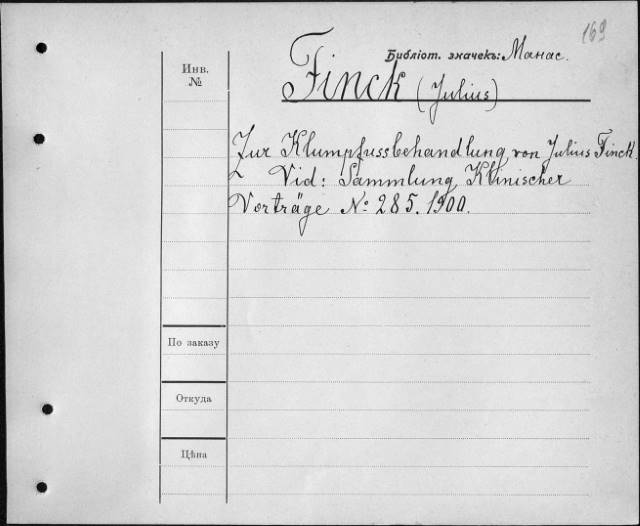 169
Библіот. значекъ: Манас.
Инв.
№
Finck (Julius)
Zur Klumpfussbehandlung von Julius Finck.
Vid: Sammlung Klinischer
Vorträge No 285. 1900.
По заказу
Откуда
Цѣна